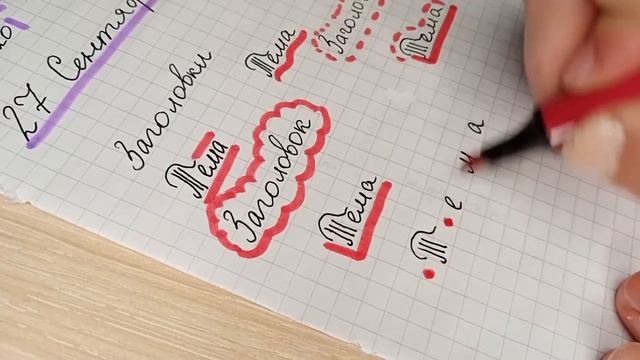 27 Сентябр
Заголовки
Тема
Заголо
Тема
Тема
Заголовок
Тема
Т е м а